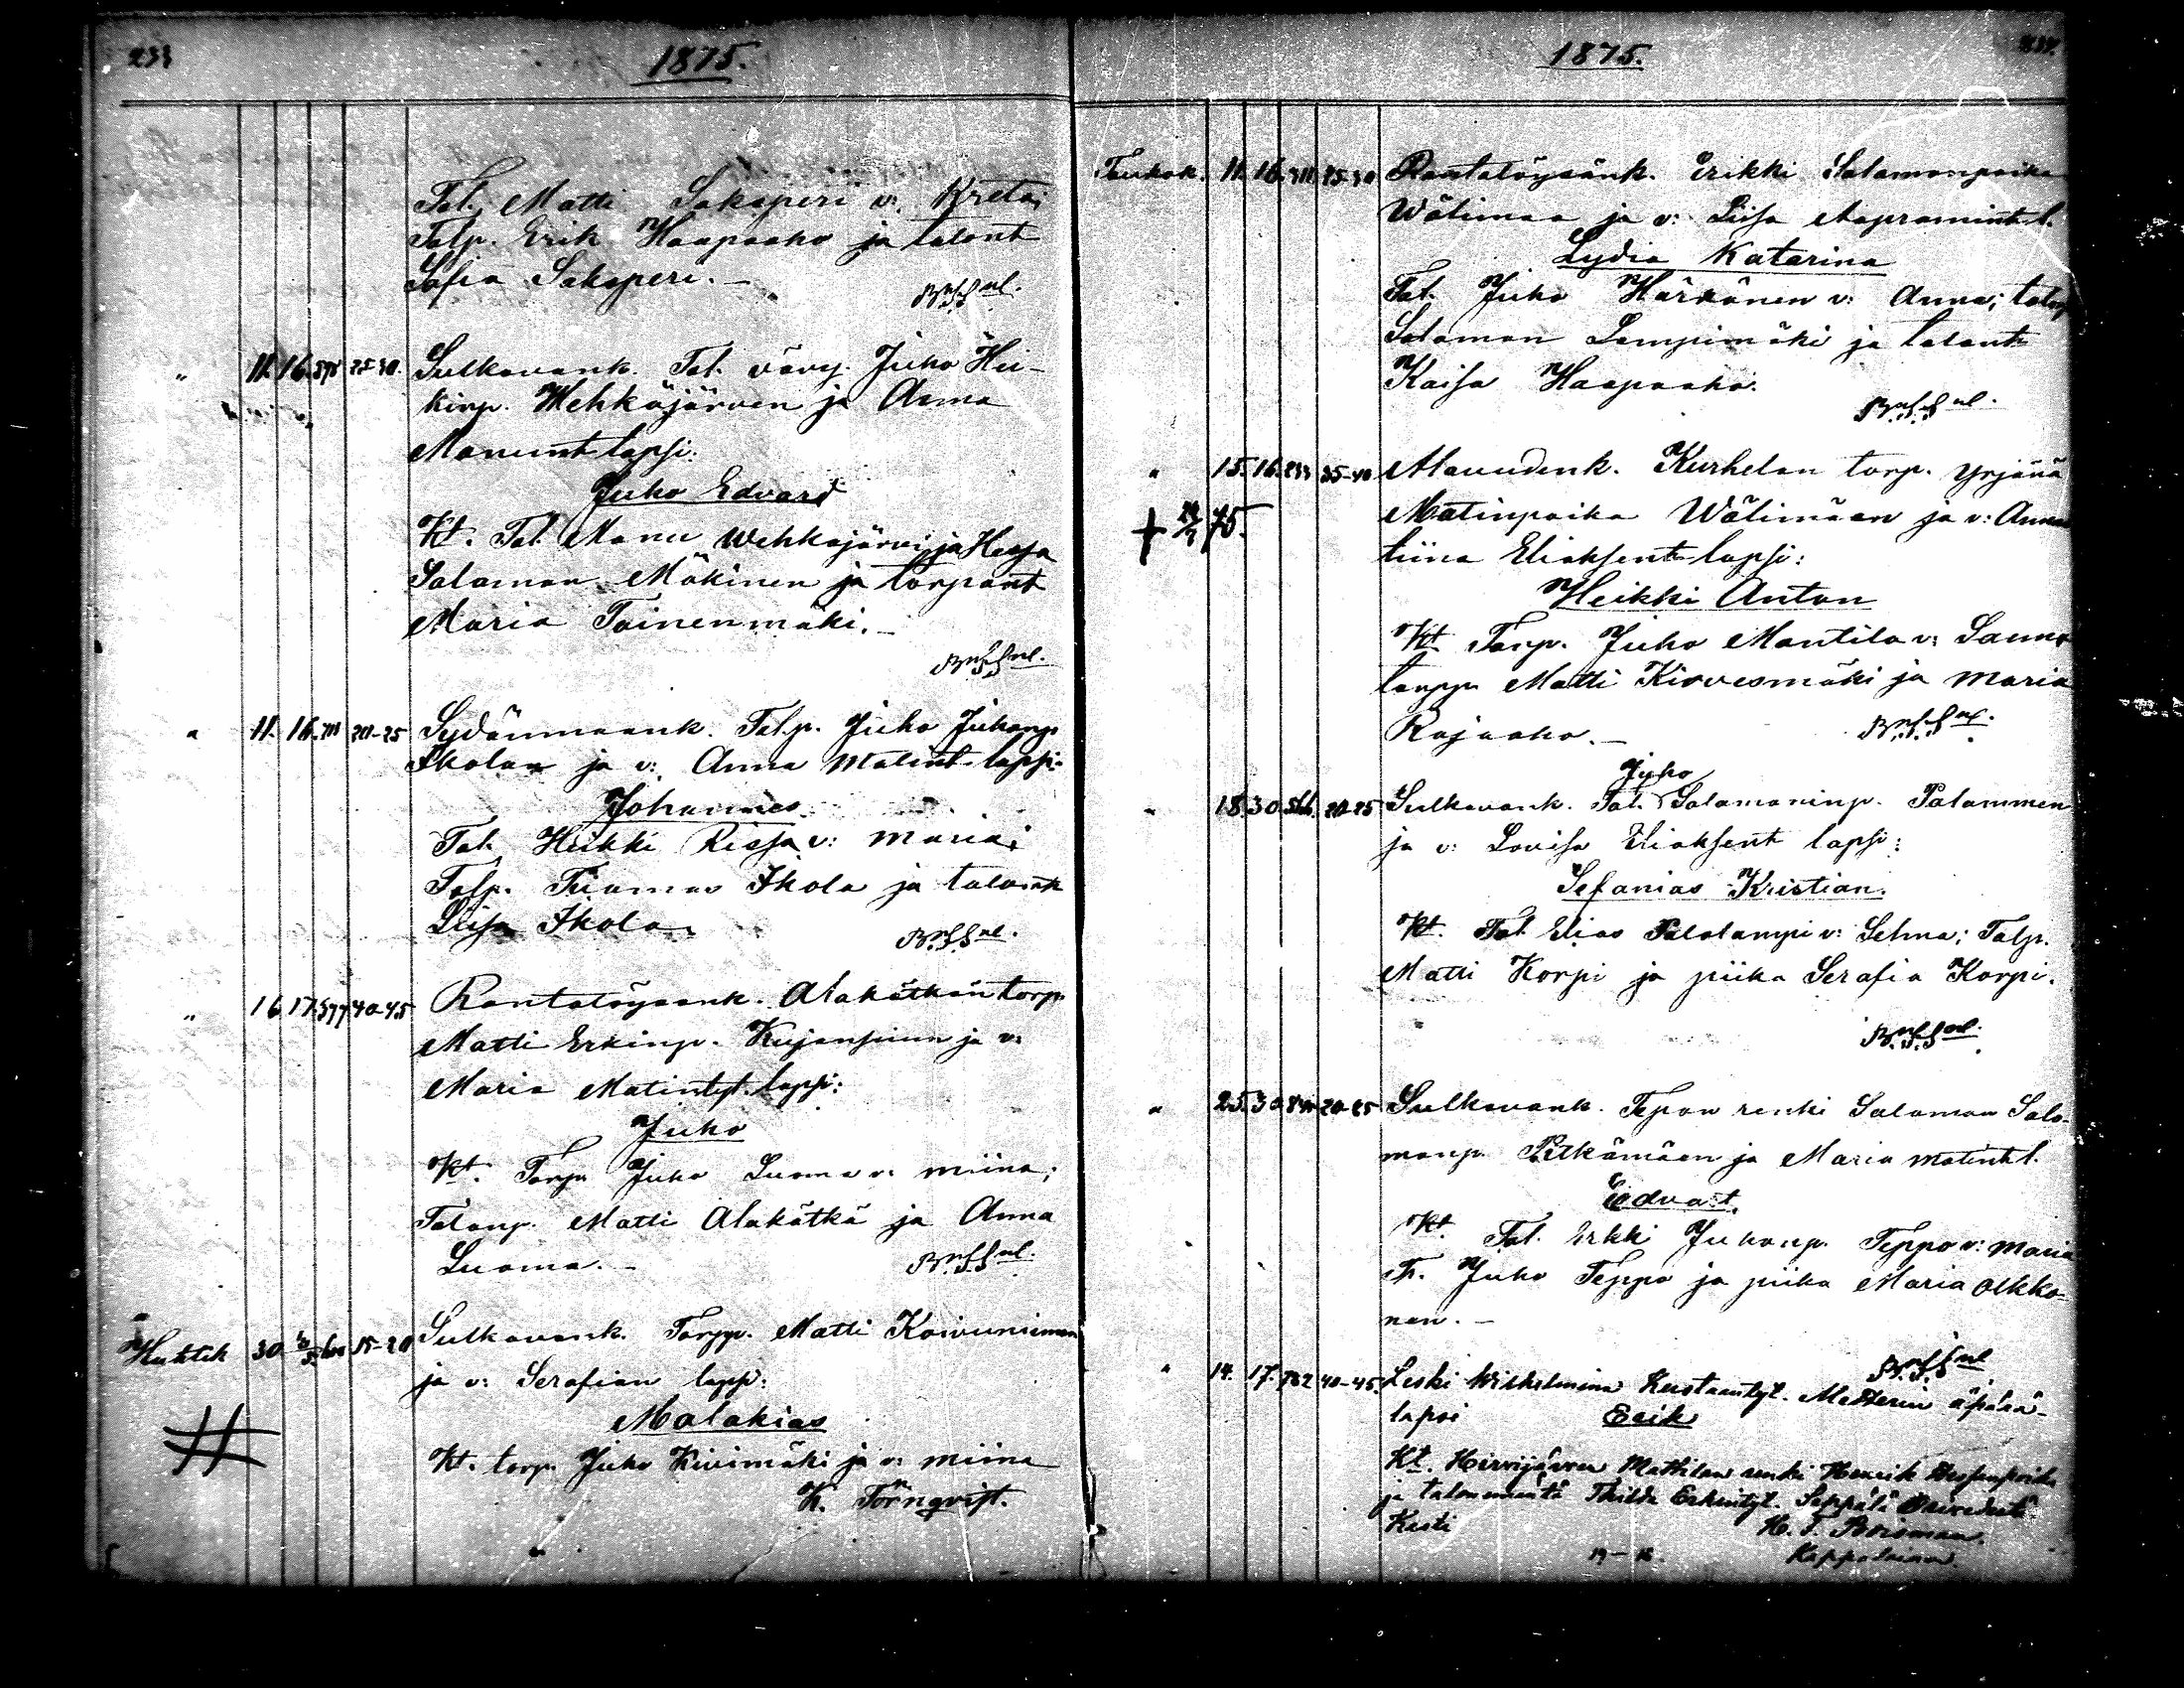 233
1875.
Tal. Matti Saksperi v: Kreta;
Talp. Erik Haapaaho ja talont
Sofia Saksperi. –
" 11. 16. 25-30. Sulkavank. Tal. vävy. Juho Hei-
kinp. Wehkäjärven ja Anna
Manunt lapsi:
Juho Edvard
Kt. Tal. Manu Wehkajärvi ja
Salamon Mäkinen ja torpant
Maria Toinenmäki. –
" 11. 16. 20-25 Sydänmaank. Talp. Juho Juhonp.
Ikolan ja v: Anna Matint. lapsi:
Johannes
Tal. Heikki Rissa v: Maria;
Talp. Tuomas Ikola ja talont
Liisa Ikola.
" 16 17. 377 40-45 Rantatöysank. Alakätkän torp.
Matti Erkinp. Kujanpään ja v:
Maria Matintyt. lapsi:
Juho
Kt. Torp. Juho Luoma v: Miina;
Talonp. Matti Alakätkä ja Anna
Luoma. –
Huhtik 30. 15-20 Sulkavank. Torpp. Matti Koivuniemen
ja v: Serafian lapsi:
Malakias
Kt. torp. Juho Kivimäki ja v: Miina
K. Törnqvist.
1875.
Toukok. 11. 16. 311. 25-30 Rantatöysänk. Erikki Salamonpoika
Wälimaa ja v: Liisa
Lydia Katarina
Tal. Juho Härkönen v: Anna; talp
Salamon Lampimäki ja talont
Kaisa Haapaaho.
" 15. 16. 233 35-40 Alavudenk. Kurhelan torp. Yrjänä
Matinpoika Wälimäen ja v: Anna
+ 75. tiina Eliaksent lapsi:
Heikki Anton
Kt. Torp. Juho Mantila v: Sanna
torpp. Matti Kirvesmäki ja Maria
Rajaaho. –
Juho
" 18. 30 20-25 Sulkavank. Tal. Salamoninp. Palammen
ja v: Lovisa Eliaksent lapsi:
Sefanias Kristian.
Kt. Tal. Elias Palolampi v: Selma; Talp.
Matti Korpi ja piika Serafia Korpi.
" 25. 30 20-25 Sulkavank. Tepon renki Salamon Salo-
monp. Pitkämäen ja Maria Matint l.
Edvart,
Kt. Tal. Erkki Juhonp. Teppo v: Maria
Tp. Juho Teppo ja piika Maria Olkko-
nen. –
" 14. 17. 782 40-45. Leski Wilhelmina Kustaantyt. äpärä-
lapsi Erik
Kt. Hirvijärven Mattilan renki Henrik
ja talonemäntä Thilda Erkintyt. Seppälä
Kesti
19–16.
Kappalainen.